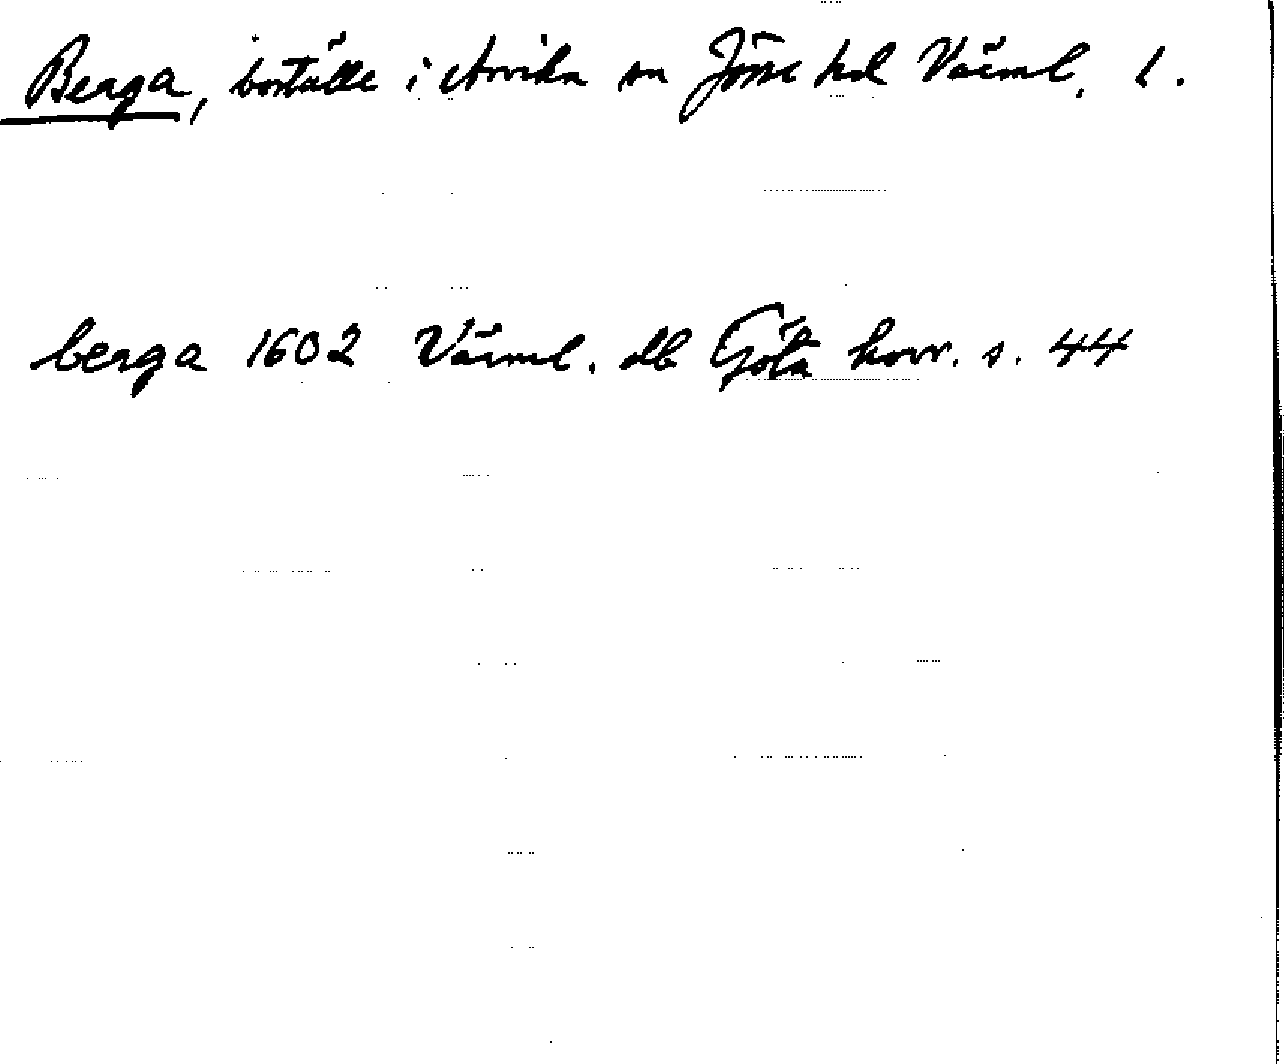 Berga, boställe i Arvika sn Jösse hd Värml. l.
berga 1602 Värml. db Göta hovr. s. 44